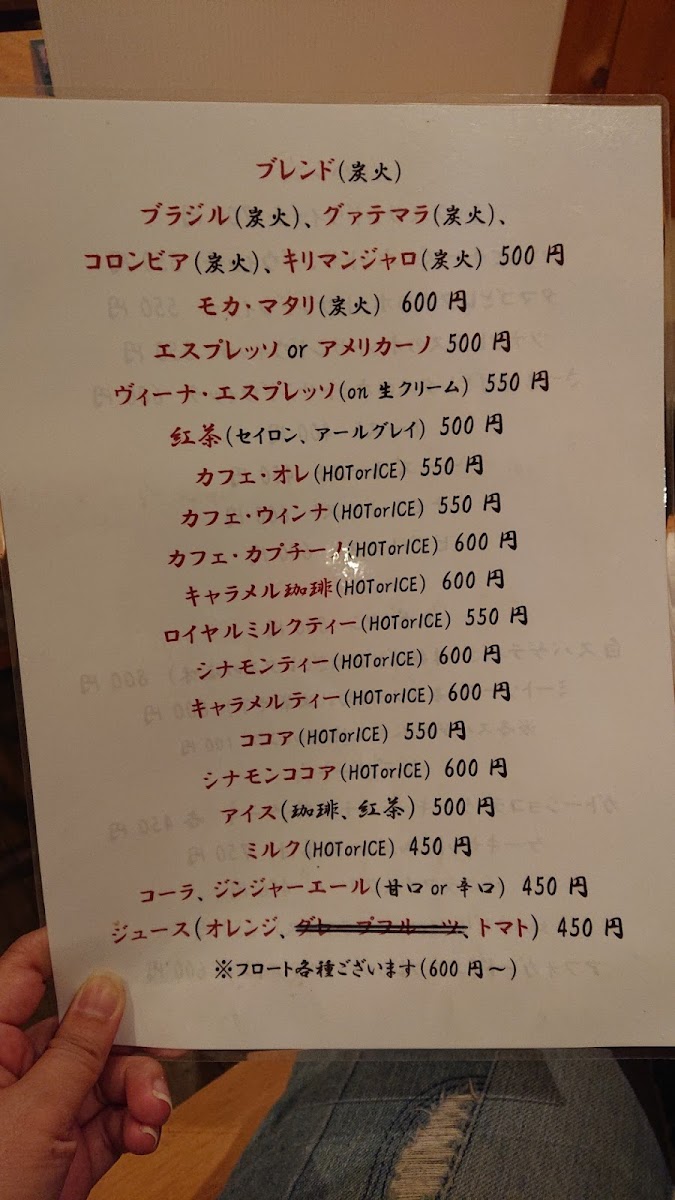 ブレンド(炭火)
ブラジル(炭火)、グァテマラ(炭火)、
コロンビア(炭火)、キリマンジャロ(炭火) 500 円
モカ・マタリ(炭火) 600 円
エスプレッソ or アメリカーノ 500 円
ヴィーナ・エスプレッソ(on 生クリーム) 550 円
紅茶(セイロン、アールグレイ) 500 円
カフェ・オレ(HOTorICE) 550 円
カフェ・ウィンナ(HOTorICE) 550 円
カフェ・カプチーノ(HOTorICE) 600 円
キャラメル珈琲(HOTorICE) 600 円
ロイヤルミルクティー(HOTorICE) 550 円
シナモンティー(HOTorICE) 600 円
キャラメルティー(HOTorICE) 600 円
ココア(HOTorICE) 550 円
シナモンココア(HOTorICE) 600 円
アイス(珈琲、紅茶) 500 円
ミルク(HOTorICE) 450 円
コーラ、ジンジャーエール(甘口 or 辛口) 450 円
ジュース(オレンジ、グレープフルーツ、トマト) 450 円
※フロート各種ございます(600 円～)